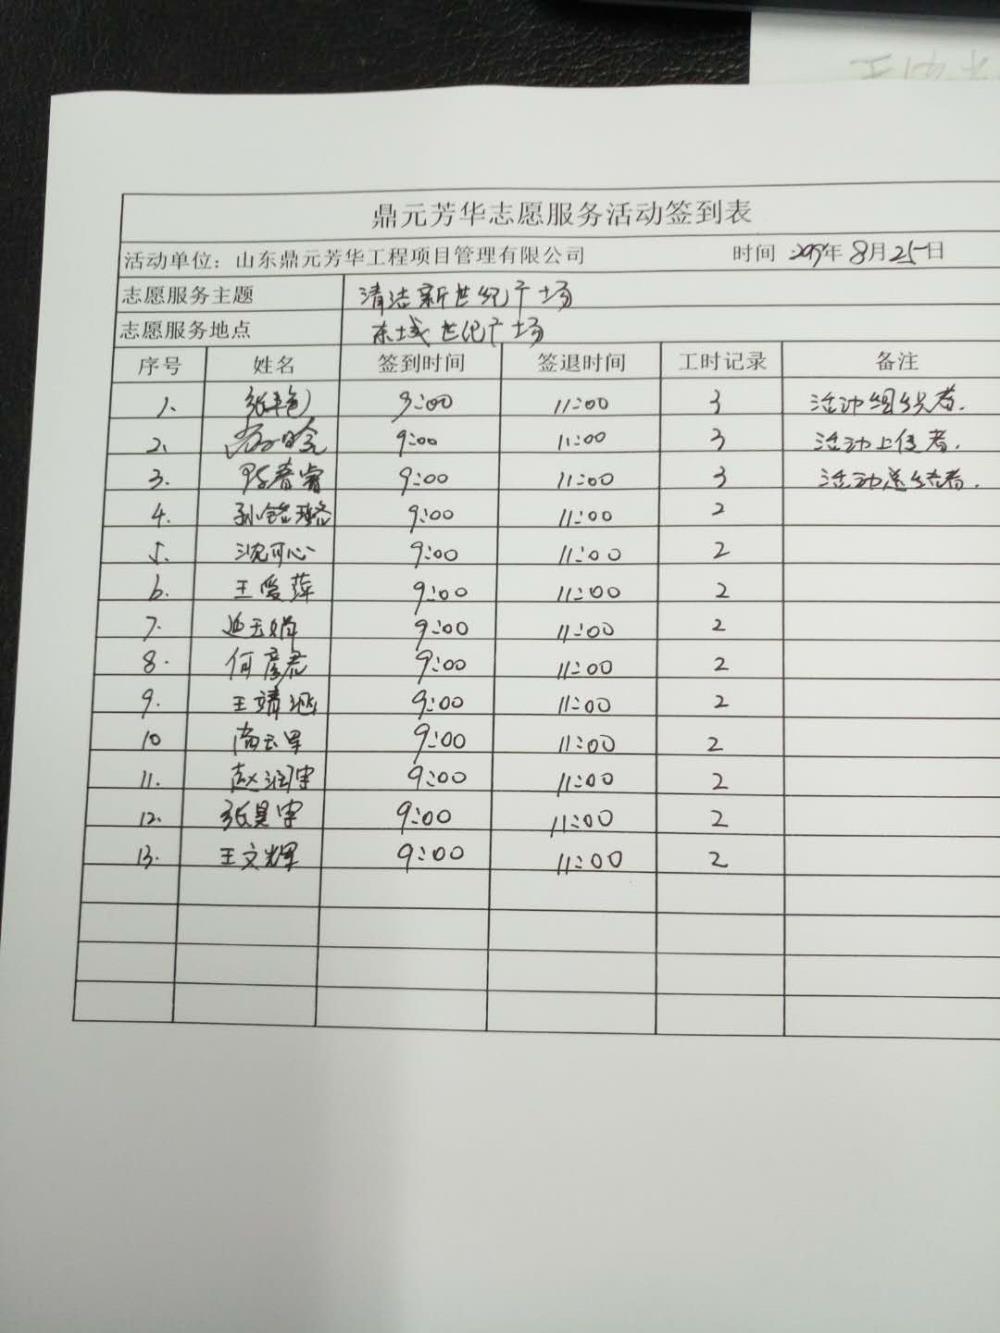 鼎元芳华志愿服务活动签到表
活动单位：山东鼎元芳华工程项目管理有限公司 时间 年8月25日
志愿服务主题 清洁新世纪广场
志愿服务地点 东城世纪广场
序号 姓名 签到时间 签退时间 工时记录 备注
1. 9:00 11:00 3 活动组织者.
2. 9:00 11:00 3 活动上传者.
3. 陈春雷 9:00 11:00 3 活动总结者.
4. 孙铭璐 9:00 11:00 2
5. 沈可心 9:00 11:00 2
6. 王爱萍 9:00 11:00 2
7. 9:00 11:00 2
8. 何彦君 9:00 11:00 2
9. 王靖 9:00 11:00 2
10 9:00 11:00 2
11. 赵润宇 9:00 11:00 2
12. 张昊宇 9:00 11:00 2
13. 王文辉 9:00 11:00 2